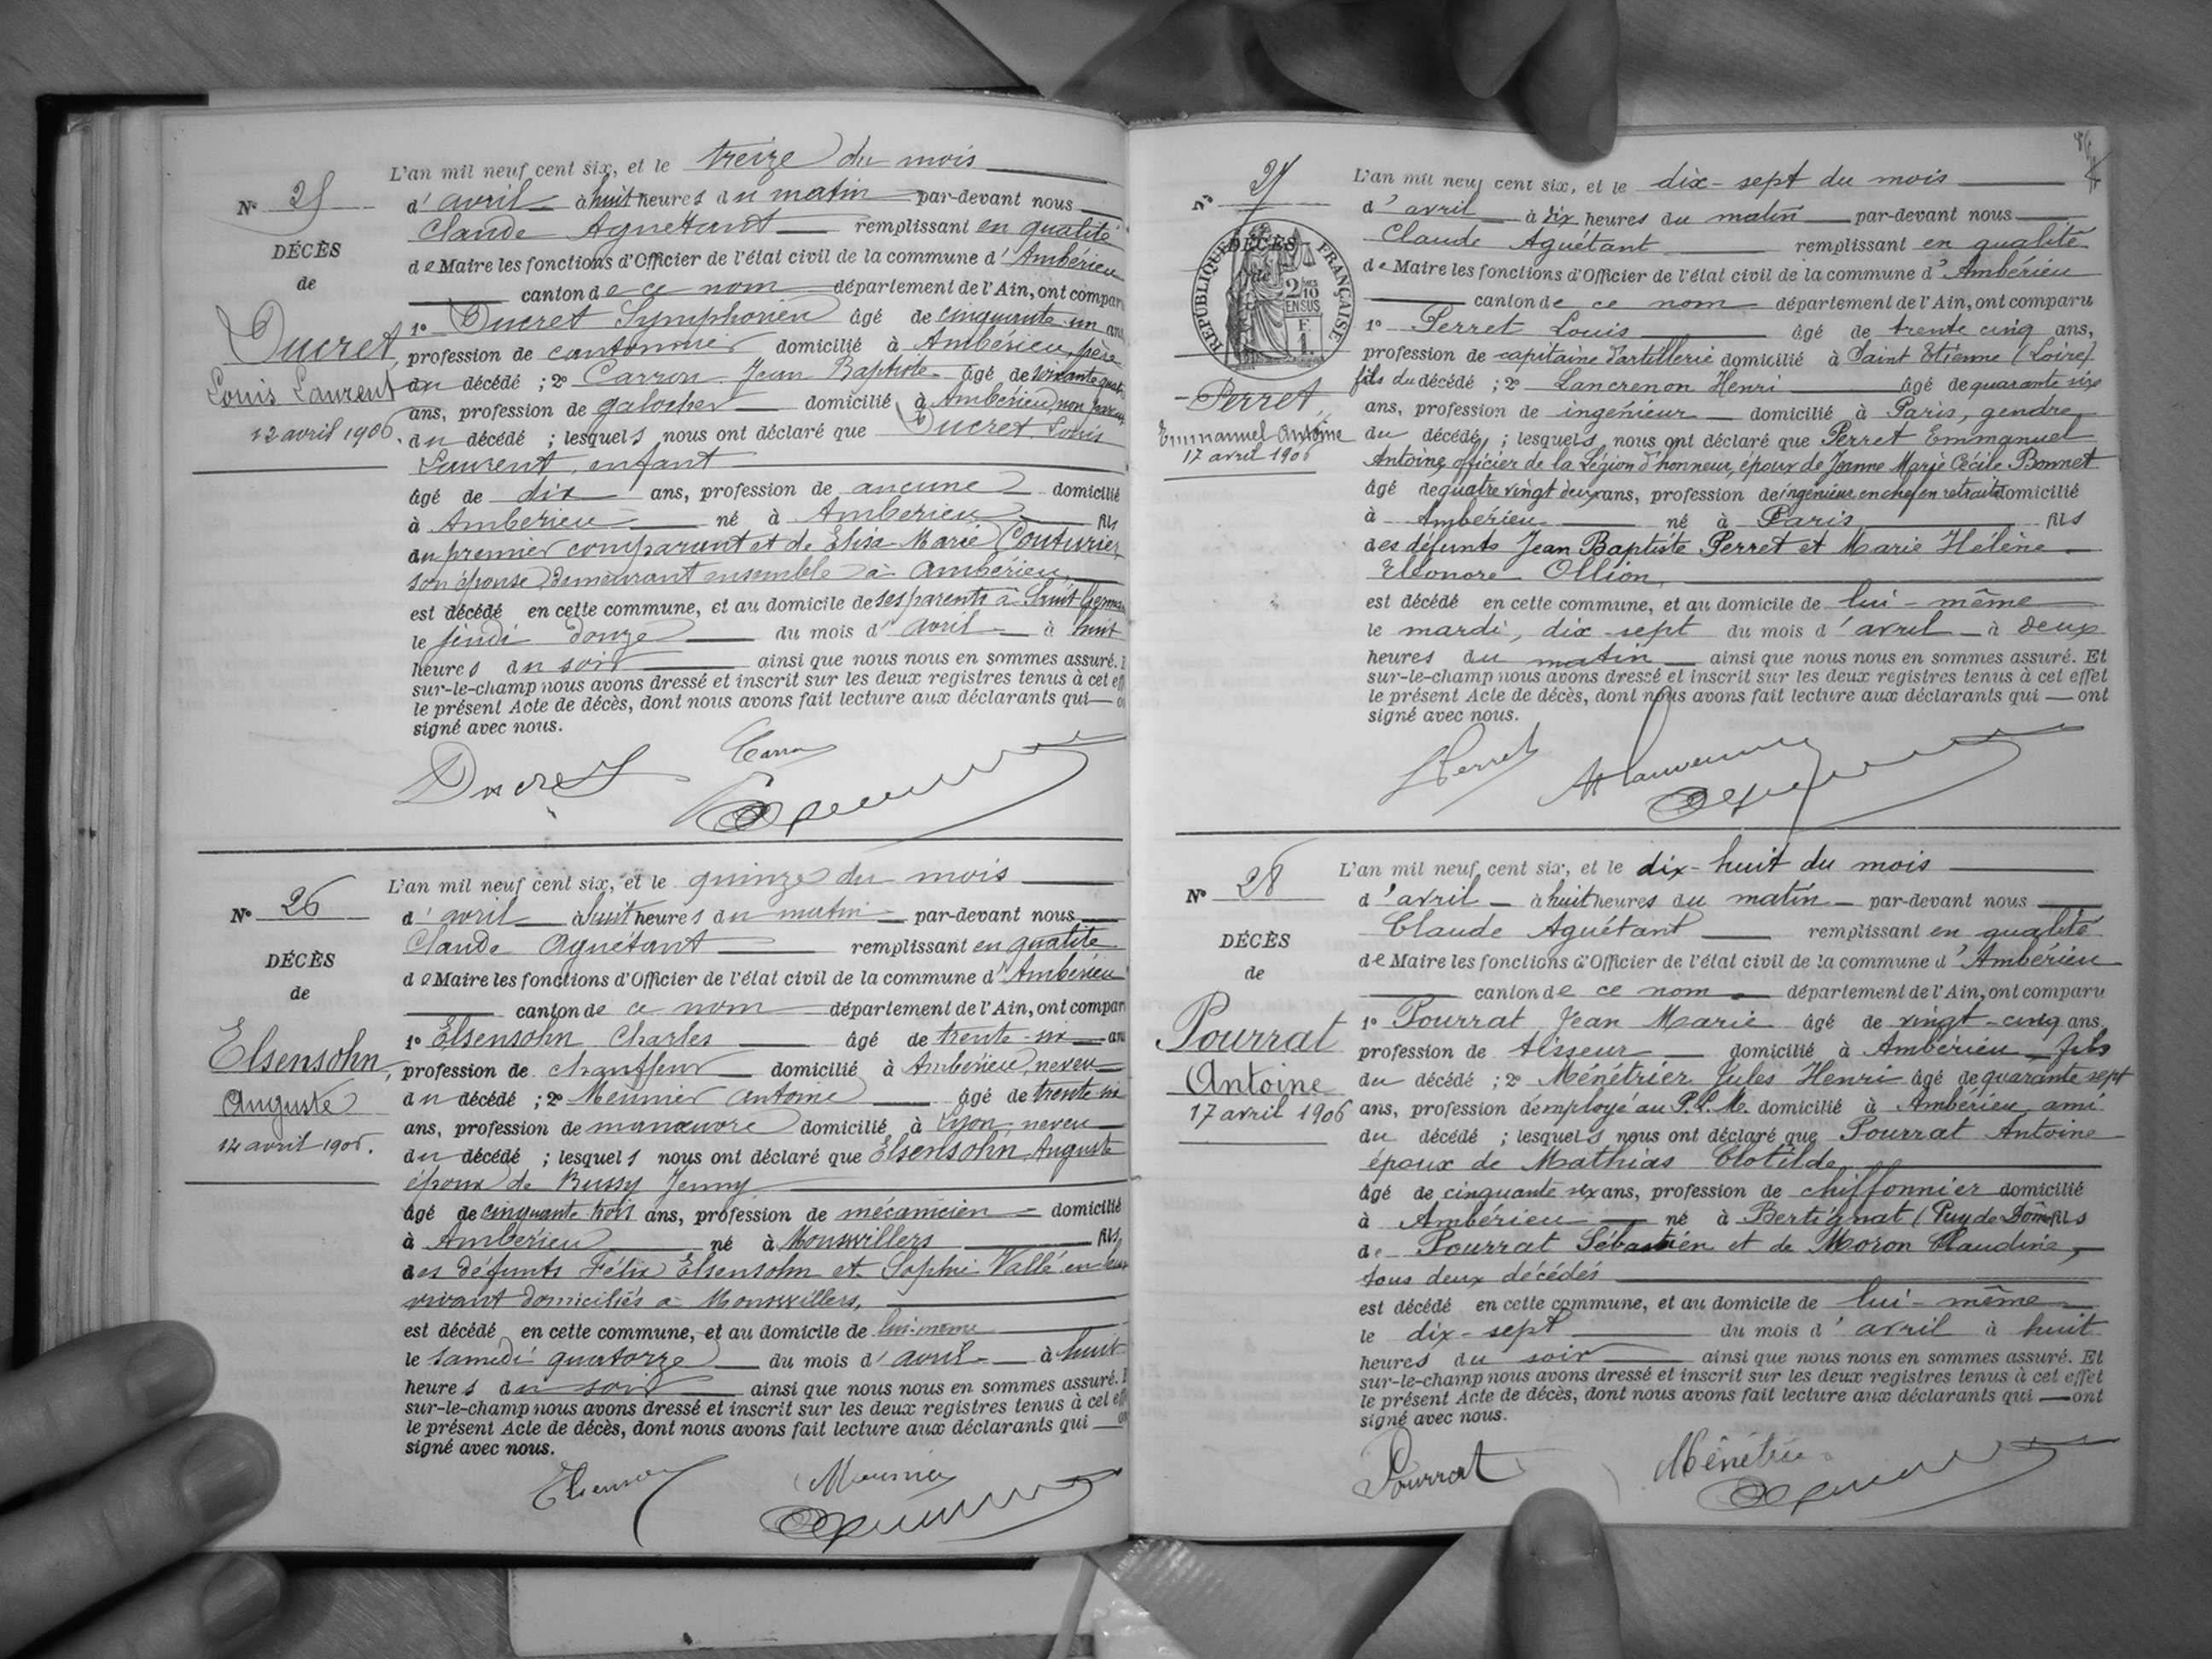 L'an mil neuf cent six, et le treize du mois
N° 25
d'avril à huit heures du matin par-devant nous
Claude Aguétant remplissant en qualité
DÉCÈS
de Maire les fonctions d'Officier de l'état civil de la commune d'Ambérieu
de
canton de ce nom département de l'Ain, ont compar
1° Ducret Symphorien âgé de cinquante un ans
Ducret,
profession de cantonnier domicilié à Ambérieu, père
Louis Laurent
du décédé ; 2° Carron Jean Baptiste âgé de
ans, profession de galocher domicilié à Ambérieu, non parent
12 avril 1906.
du décédé ; lesquels nous ont déclaré que Ducret Louis
Laurent, enfant
âgé de dix ans, profession de aucune domicilié
à Ambérieu né à Ambérieu fils
du premier comparant et de Elisa Marie Couturier,
son épouse demeurant ensemble à Ambérieu,
est décédé en cette commune, et au domicile de ses parents à Saint Germain
le jeudi douze du mois d'avril à huit
heures du soir ainsi que nous nous en sommes assuré.
sur-le-champ nous avons dressé et inscrit sur les deux registres tenus à cet eff
le présent Acte de décès, dont nous avons fait lecture aux déclarants qui
signé avec nous.
Ducret
L'an mil neuf cent six, et le quinze du mois
N° 26
d'avril à huit heures du matin par-devant nous
Claude Aguétant remplissant en qualité
DÉCÈS
de Maire les fonctions d'Officier de l'état civil de la commune d'Ambérieu
de
canton de ce nom département de l'Ain, ont compar
1° Elsensohn Charles âgé de trente six ans
Elsensohn,
profession de chauffeur domicilié à Ambérieu, neveu
Auguste
du décédé ; 2° Meunier Antoine âgé de trente six
ans, profession de manœuvre domicilié à Lyon, neveu
14 avril 1906.
du décédé ; lesquels nous ont déclaré que Elsensohn Auguste
époux de Bussy Jenny
âgé de cinquante trois ans, profession de mécanicien domicilié
à Ambérieu né à Monswillers fils
des défunts Félix Elsensohn et Sophie Vallé en leur
vivant domiciliés à Monswillers,
est décédé en cette commune, et au domicile de lui-même
le samedi quatorze du mois d'avril à huit
heures du soir ainsi que nous nous en sommes assuré.
sur-le-champ nous avons dressé et inscrit sur les deux registres tenus à cet eff
le présent Acte de décès, dont nous avons fait lecture aux déclarants qui
signé avec nous.
Meunier
L'an mil neuf cent six, et le dix-sept du mois
N° 27
d'avril à dix heures du matin par-devant nous
Claude Aguétant remplissant en qualité
DÉCÈS
RÉPUBLIQUE FRANÇAISE
2/10
EN SUS
F.
1.
de Maire les fonctions d'Officier de l'état civil de la commune d'Ambérieu
canton de ce nom département de l'Ain, ont comparu
1° Perret Louis âgé de trente cinq ans,
profession de capitaine d'artillerie domicilié à Saint Etienne (Loire)
fils du décédé ; 2° Lancrenon Henri âgé de quarante six
Perret,
ans, profession de ingénieur domicilié à Paris, gendre
Emmanuel Antoine
du décédé, ; lesquels nous ont déclaré que Perret Emmanuel
17 avril 1906
Antoine officier de la Légion d'honneur, époux de Jeanne Marie Cécile Bonnet
âgé de quatre vingt deux ans, profession de ingénieur en chef en retraite domicilié
à Ambérieu né à Paris fils
des défunts Jean Baptiste Perret et Marie Hélène
Eléonore Ollion,
est décédé en cette commune, et au domicile de lui-même
le mardi, dix-sept du mois d'avril à deux
heures du matin ainsi que nous nous en sommes assuré. Et
sur-le-champ nous avons dressé et inscrit sur les deux registres tenus à cet effet
le présent Acte de décès, dont nous avons fait lecture aux déclarants qui ont
signé avec nous.
LPerret
L'an mil neuf cent six, et le dix-huit du mois
N° 28
d'avril à huit heures du matin par-devant nous
Claude Aguétant remplissant en qualité
DÉCÈS
de Maire les fonctions d'Officier de l'état civil de la commune d'Ambérieu
de
canton de ce nom département de l'Ain, ont comparu
1° Pourrat Jean Marie âgé de vingt-cinq ans,
Pourrat
profession de tisseur domicilié à Ambérieu fils
Antoine
du décédé ; 2° Ménétrier Jules Henri âgé de quarante sept
17 avril 1906
ans, profession d'employé au P.L.M. domicilié à Ambérieu, ami
du décédé ; lesquels nous ont déclaré que Pourrat Antoine
époux de Mathias Clotilde
âgé de cinquante six ans, profession de chiffonnier domicilié
à Ambérieu né à Bertignat (Puy de Dôme) fils
de Pourrat Sébastien et de Moron Claudine,
tous deux décédés
est décédé en cette commune, et au domicile de lui-même
le dix-sept du mois d'avril à huit
heures du soir ainsi que nous nous en sommes assuré. Et
sur-le-champ nous avons dressé et inscrit sur les deux registres tenus à cet effet
le présent Acte de décès, dont nous avons fait lecture aux déclarants qui ont
signé avec nous.
Pourrat Ménétrier